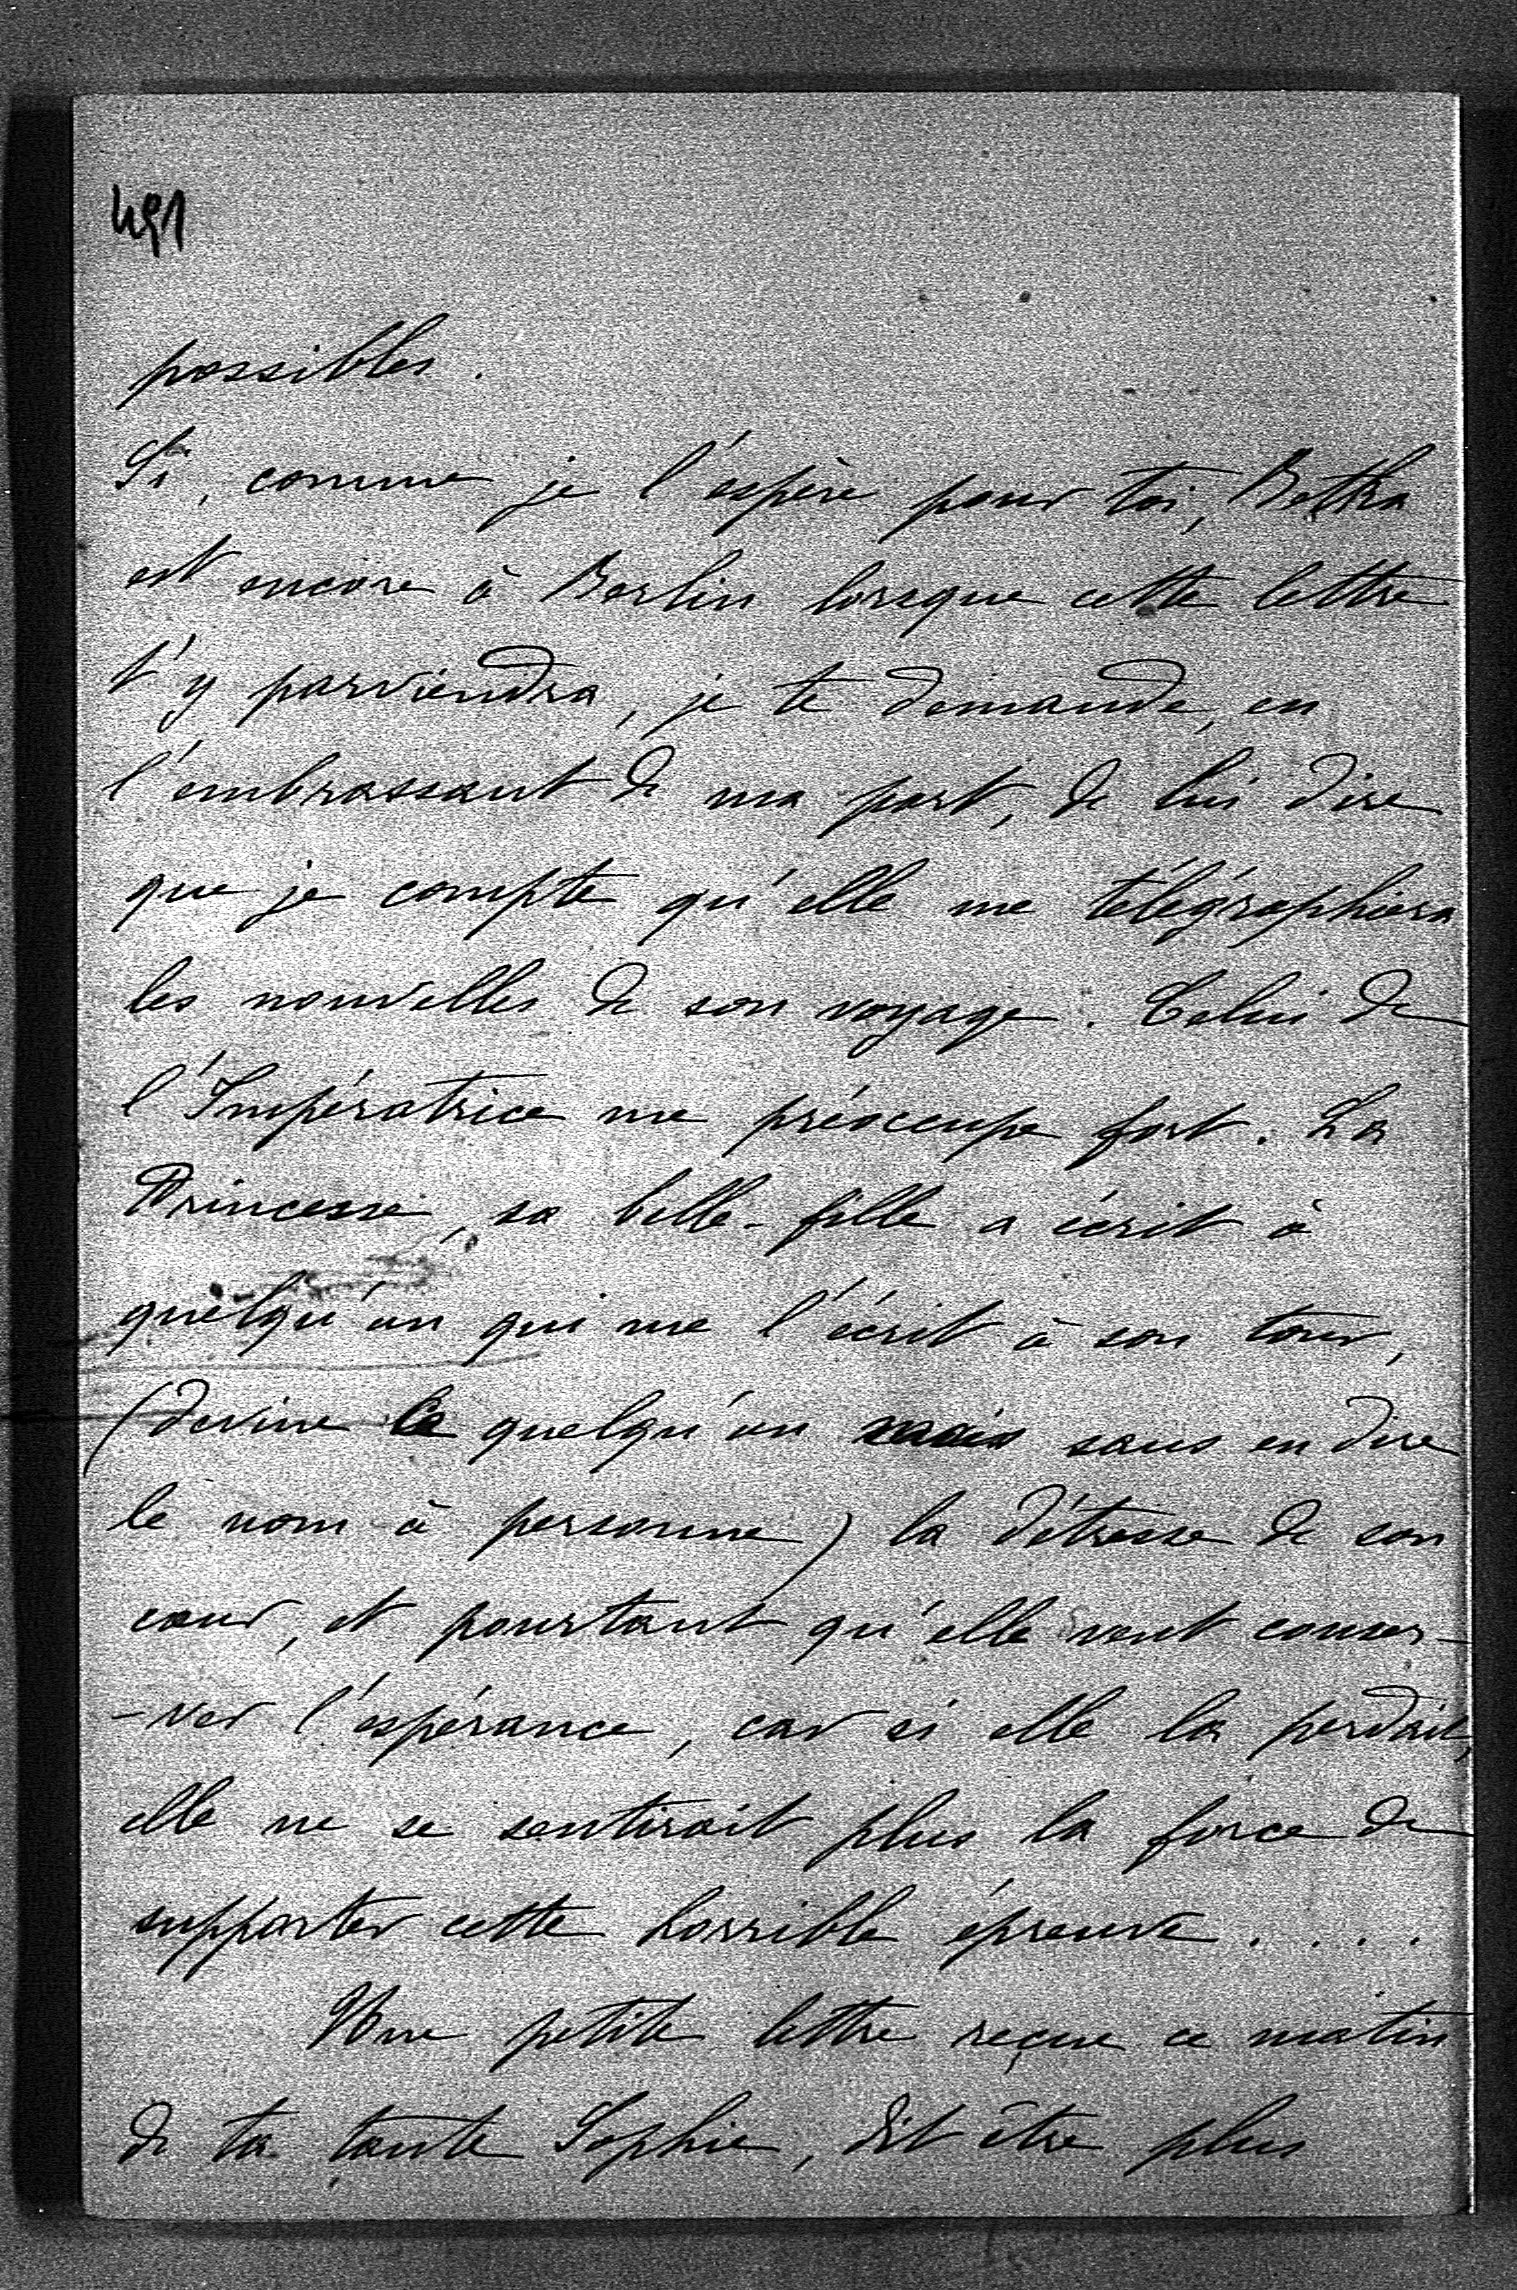 491
possibles.
Si, comme je l'espère pour toi, Betka
est encore à Berlin lorsque cette lettre
t'y parviendra, je te demande, en
l'embrassant de ma part, de lui dire
que je compte qu'elle me télégraphiera
les nouvelles de son voyage. Celui de
l'Impératrice me préoccupe fort. La
Princesse, sa belle-fille a écrit à
quelqu'un qui me l'écrit à son tour,
(devine le quelqu'un mais sans en dire
le nom à personne) la détresse de son
cœur, et pourtant qu'elle veut conser-
-ver l'espérance, car si elle la perdait,
elle ne se sentirait plus la force de
supporter cette horrible épreuve....
Une petite lettre reçue ce matin
de ta tante Sophie, dit être plus